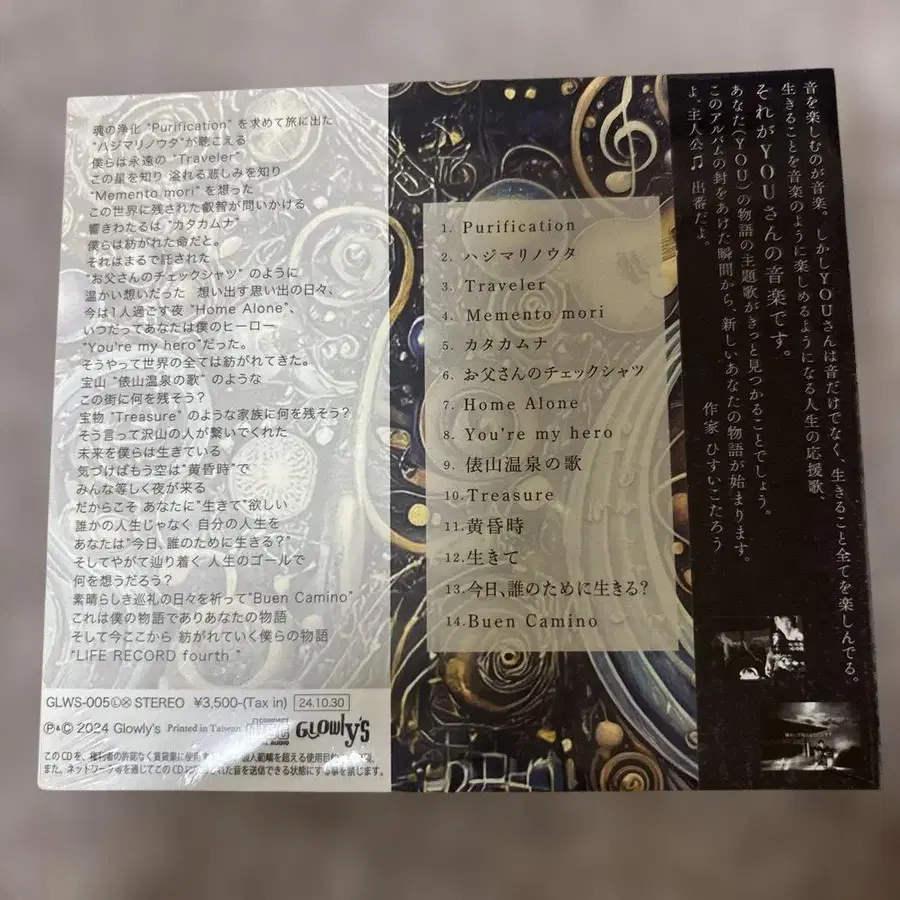 魂の浄化 "Purification" を求めて旅に出た
"ハジマリノウタ"が聴こえる
僕らは永遠の "Traveler"
この星を知り 溢れる悲しみを知り
"Memento mori" を想った
この世界に残された叡智が問いかける
響きわたるは "カタカムナ"
僕らは紡がれた命だと。
それはまるで託された
"お父さんのチェックシャツ" のように
温かい想いだった 想い出す思い出の日々、
今は1人過ごす夜 "Home Alone"、
いつだってあなたは僕のヒーロー
"You're my hero"だった。
そうやって世界の全ては紡がれてきた。
宝山 "俵山温泉の歌" のような
この街に何を残そう?
宝物 "Treasure" のような家族に何を残そう?
そう言って沢山の人が繋いでくれた
未来を僕らは生きている
気づけばもう空は"黄昏時"で
みんな等しく夜が来る
だからこそ あなたに"生きて"欲しい
誰かの人生じゃなく 自分の人生を
あなたは"今日、誰のために生きる?"
そしてやがて辿り着く 人生のゴールで
何を想うだろう?
素晴らしき巡礼の日々を祈って"Buen Camino"
これは僕の物語でありあなたの物語
そして今ここから 紡がれていく僕らの物語
"LIFE RECORD fourth "
GLWS-005 Ⓛ Ⓧ STEREO ¥3,500-(Tax in) 24.10.30
Ⓟ&© 2024 Glowly's Printed in Taiwan
GLOWLY'S
このCDを、権利者の許諾なく賃貸業に使用
個人範疇を超える使用目的
また、ネットワーク等を通じてこのCDに
された音を送信できる状態にする事を禁じます。
1. Purification
2. ハジマリノウタ
3. Traveler
4. Memento mori
5. カタカムナ
6. お父さんのチェックシャツ
7. Home Alone
8. You're my hero
9. 俵山温泉の歌
10. Treasure
11. 黄昏時
12. 生きて
13. 今日、誰のために生きる?
14. Buen Camino
音を楽しむのが音楽。しかしYOUさんは音だけでなく、生きること全てを楽しんでる。
生きることを音楽のように楽しめるようになる人生の応援歌、
それがYOUさんの音楽です。
あなた(YOU)の物語の主題歌がきっと見つかることでしょう。
このアルバムの封をあけた瞬間から、新しいあなたの物語が始まります。
よ、主人公♫ 出番だよ。
作家 ひすいこたろう